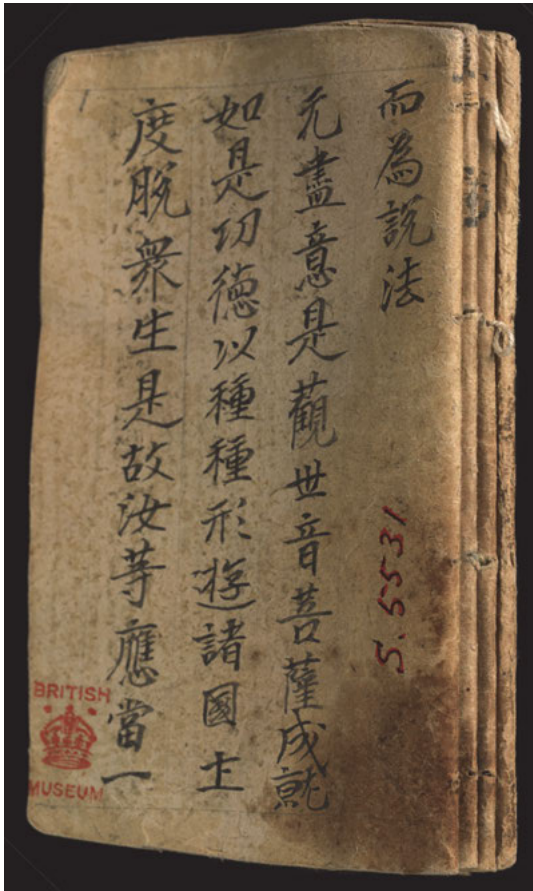 而為說法
无盡意是觀世音菩薩成就
如是功德以種種形遊諸國土
度脫衆生是故汝等應當一
S.5531
BRITISH
MUSEUM